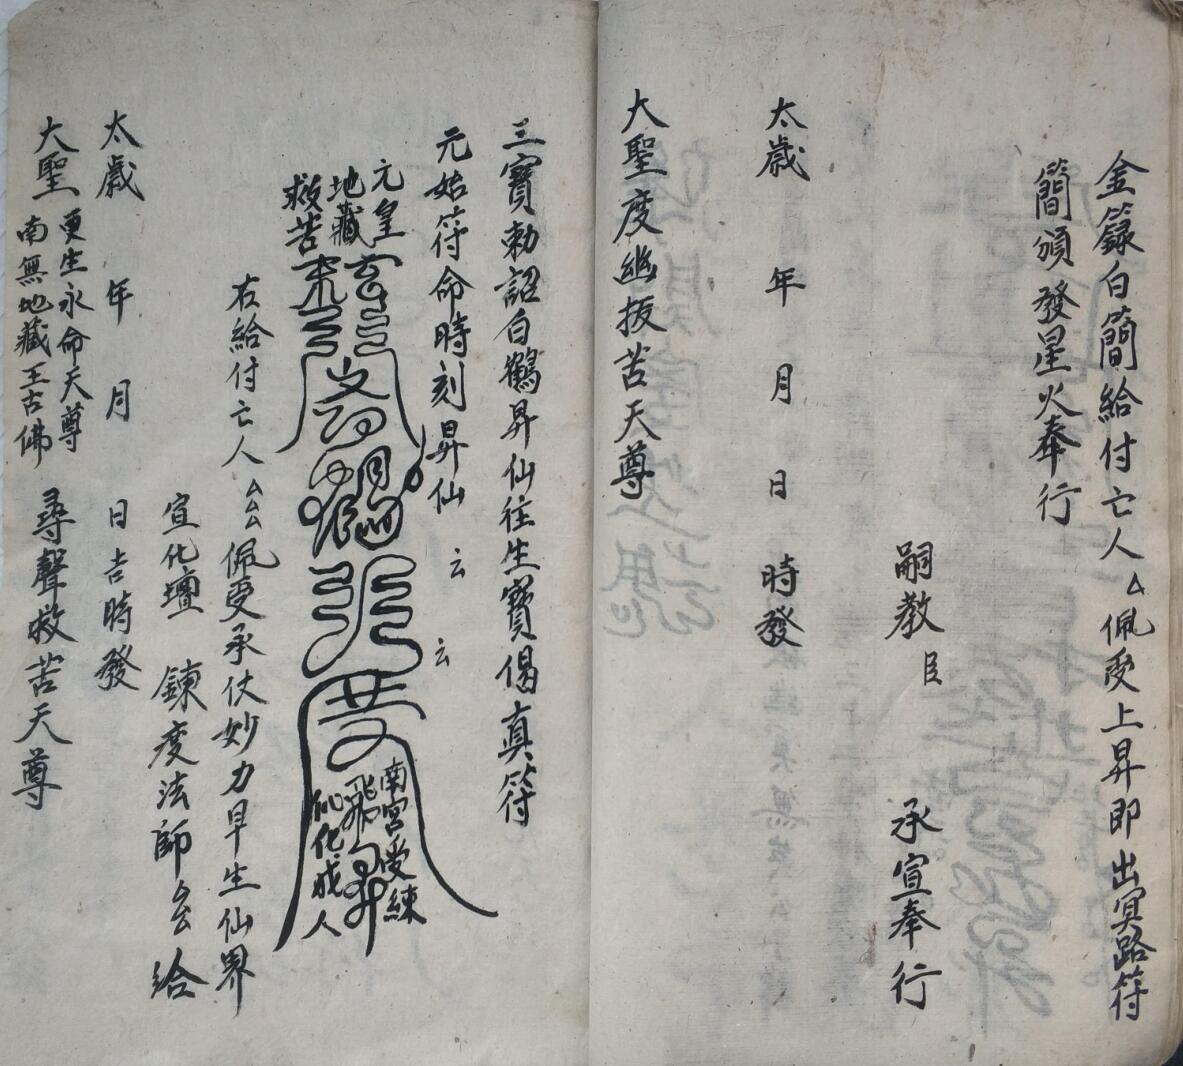 金籙白簡給付亡人厶佩受上昇即出冥路符
簡頒發星火奉行
嗣教臣 承宣奉行
太歲 年 月 日 時發
大聖度幽拔苦天尊
三寶勅詔白鶴昇仙往生寶偈真符
元始符命時刻昇仙 云 云
元皇
地藏
救苦
南宮受煉
飛身
仙化成人
右給付亡人厶厶佩受承仗妙力早生仙界
宣化壇 鍊度法師厶厶給
太歲 年 月 日吉時發
大聖
更生永命天尊
南無地藏王古佛
尋聲救苦天尊